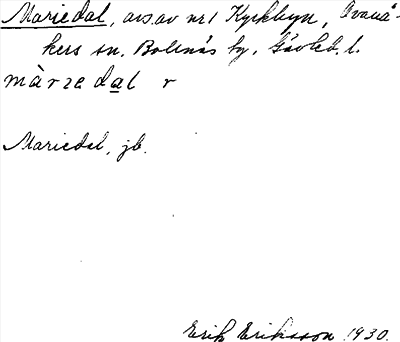 Mariedal, avs. av nr 1 Kyrkbyn, Ovanå-
kers sn. Bollnäs tg. Gävleb. l.
màrzedal r
Mariedal, jb.
Erik Eriksson 1930.